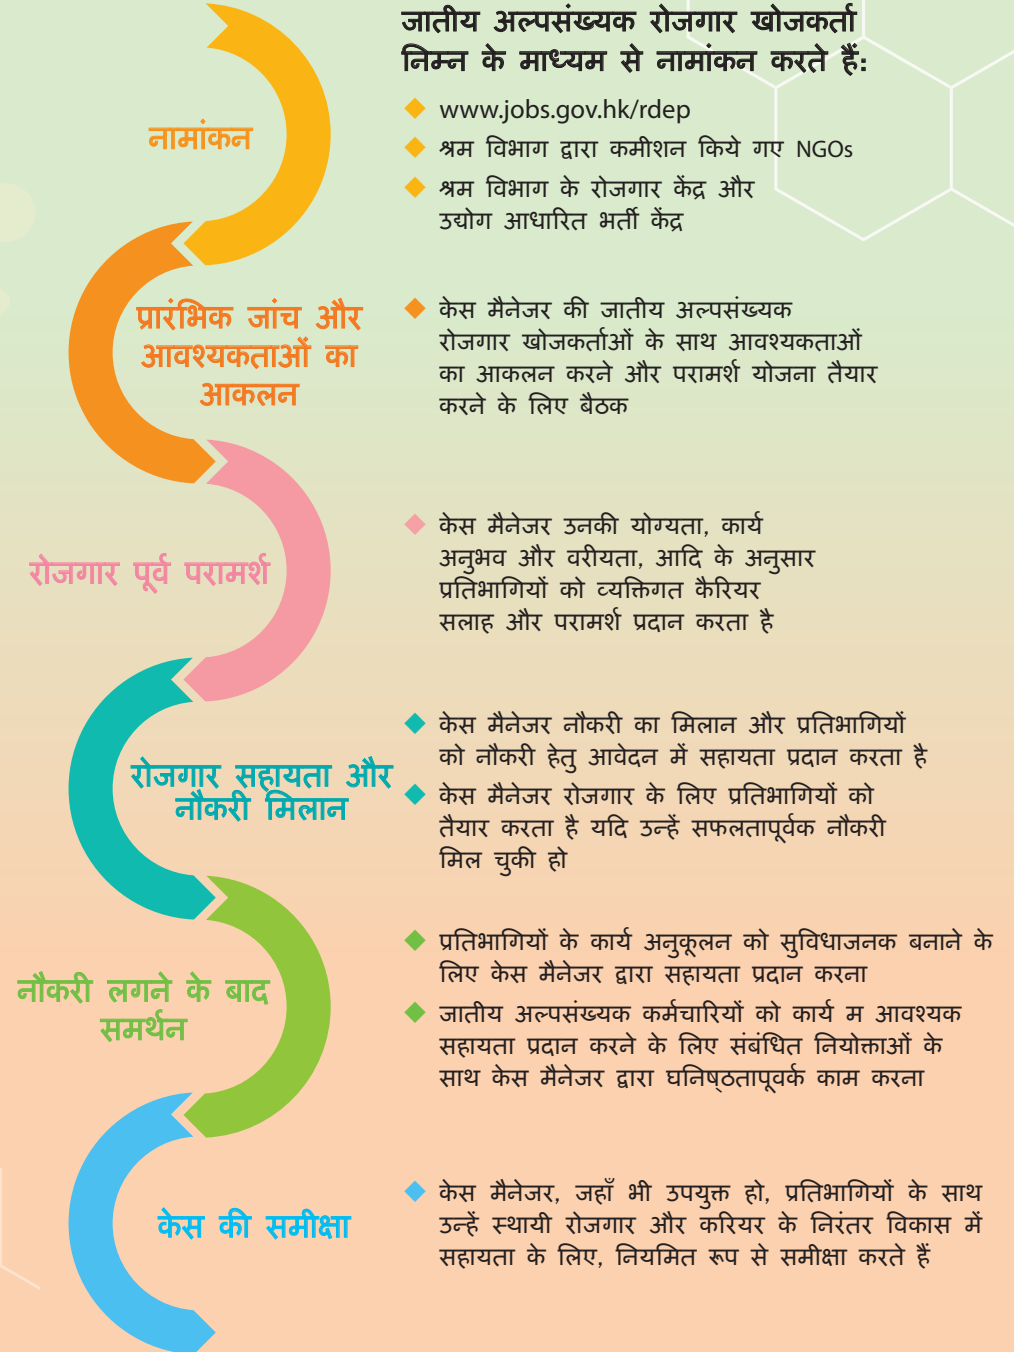 जातीय अल्पसंख्यक रोजगार खोजकर्ता
निम्न के माध्यम से नामांकन करते हैं:
नामांकन
www.jobs.gov.hk/rdep
श्रम विभाग द्वारा कमीशन किये गए NGOs
श्रम विभाग के रोजगार केंद्र और
उद्योग आधारित भर्ती केंद्र
प्रारंभिक जांच और
आवश्यकताओं का
आकलन
केस मैनेजर की जातीय अल्पसंख्यक
रोजगार खोजकर्ताओं के साथ आवश्यकताओं
का आकलन करने और परामर्श योजना तैयार
करने के लिए बैठक
रोजगार पूर्व परामर्श
केस मैनेजर उनकी योग्यता, कार्य
अनुभव और वरीयता, आदि के अनुसार
प्रतिभागियों को व्यक्तिगत कैरियर
सलाह और परामर्श प्रदान करता है
रोजगार सहायता और
नौकरी मिलान
केस मैनेजर नौकरी का मिलान और प्रतिभागियों
को नौकरी हेतु आवेदन में सहायता प्रदान करता है
केस मैनेजर रोजगार के लिए प्रतिभागियों को
तैयार करता है यदि उन्हें सफलतापूर्वक नौकरी
मिल चुकी हो
नौकरी लगने के बाद
समर्थन
प्रतिभागियों के कार्य अनुकूलन को सुविधाजनक बनाने के
लिए केस मैनेजर द्वारा सहायता प्रदान करना
जातीय अल्पसंख्यक कर्मचारियों को कार्य म आवश्यक
सहायता प्रदान करने के लिए संबंधित नियोक्ताओं के
साथ केस मैनेजर द्वारा घनिष्ठतापूवर्क काम करना
केस की समीक्षा
केस मैनेजर, जहाँ भी उपयुक्त हो, प्रतिभागियों के साथ
उन्हें स्थायी रोजगार और करियर के निरंतर विकास में
सहायता के लिए, नियमित रूप से समीक्षा करते हैं